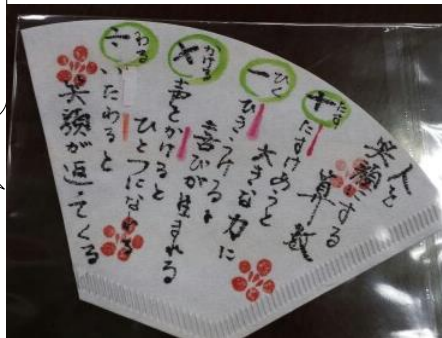 人を
笑顔にする
算数
たす
＋
たすけあうと
大きな力に
ひく
－
ひきうけると
喜びが生まれる
かける
×
声をかけると
ひとつになれる
わる
÷
いたわると
笑顔が返ってくる